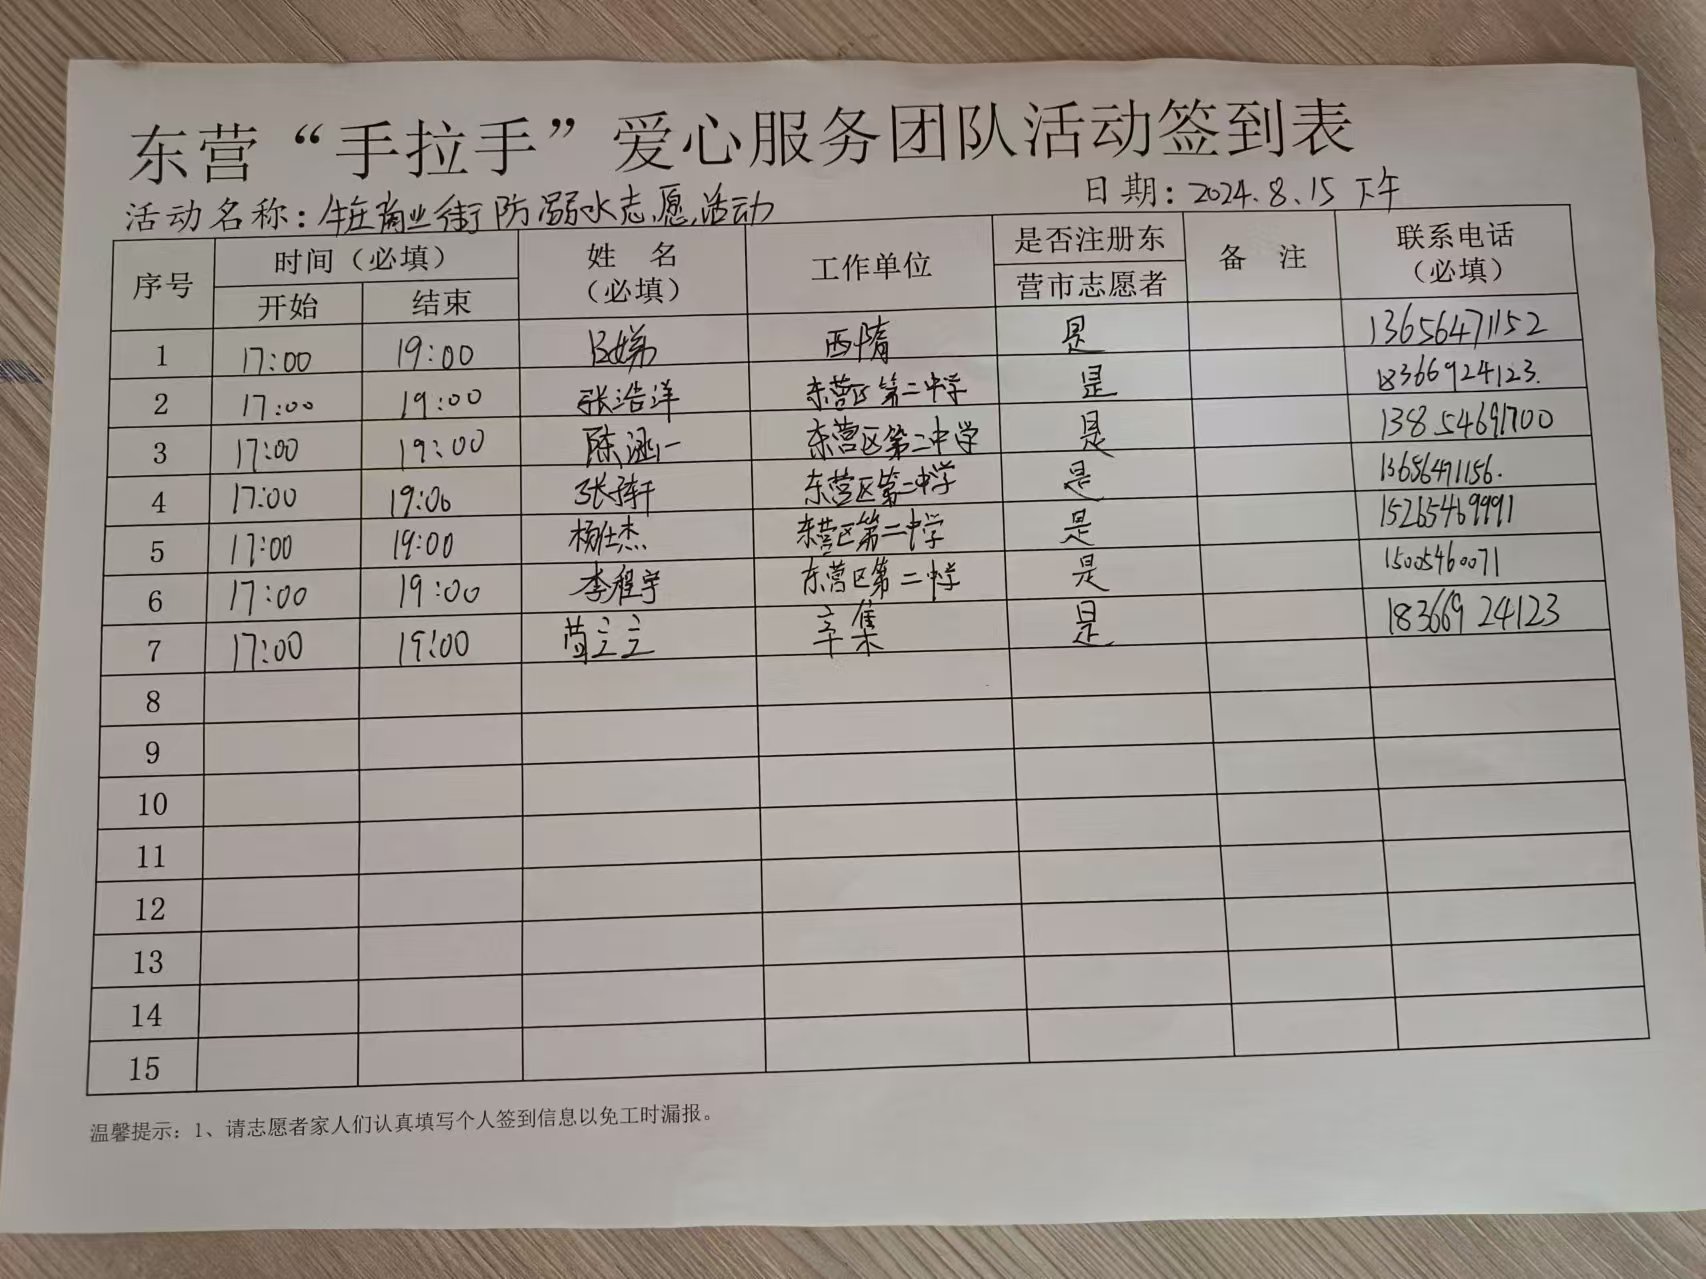 东营“手拉手”爱心服务团队活动签到表
活动名称：牛庄商业街防溺水志愿活动 日期：2024.8.15下午
序号 时间（必填） 姓 名（必填） 工作单位 是否注册东营市志愿者 备 注 联系电话（必填）
开始 结束
1 17:00 19:00 西隋 是 13656471152
2 17:00 19:00 张浩洋 东营区第二中学 是 18366924123.
3 17:00 19:00 陈涵一 东营区第二中学 是 13854691700
4 17:00 19:00 东营区第二中学 是 13656471156.
5 17:00 19:00 杨仕杰 东营区第二中学 是 15265469991
6 17:00 19:00 李程宇 东营区第二中学 是 15005460071
7 17:00 19:00 辛集 是 18366924123
8
9
10
11
12
13
14
15
温馨提示：1、请志愿者家人们认真填写个人签到信息以免工时漏报。